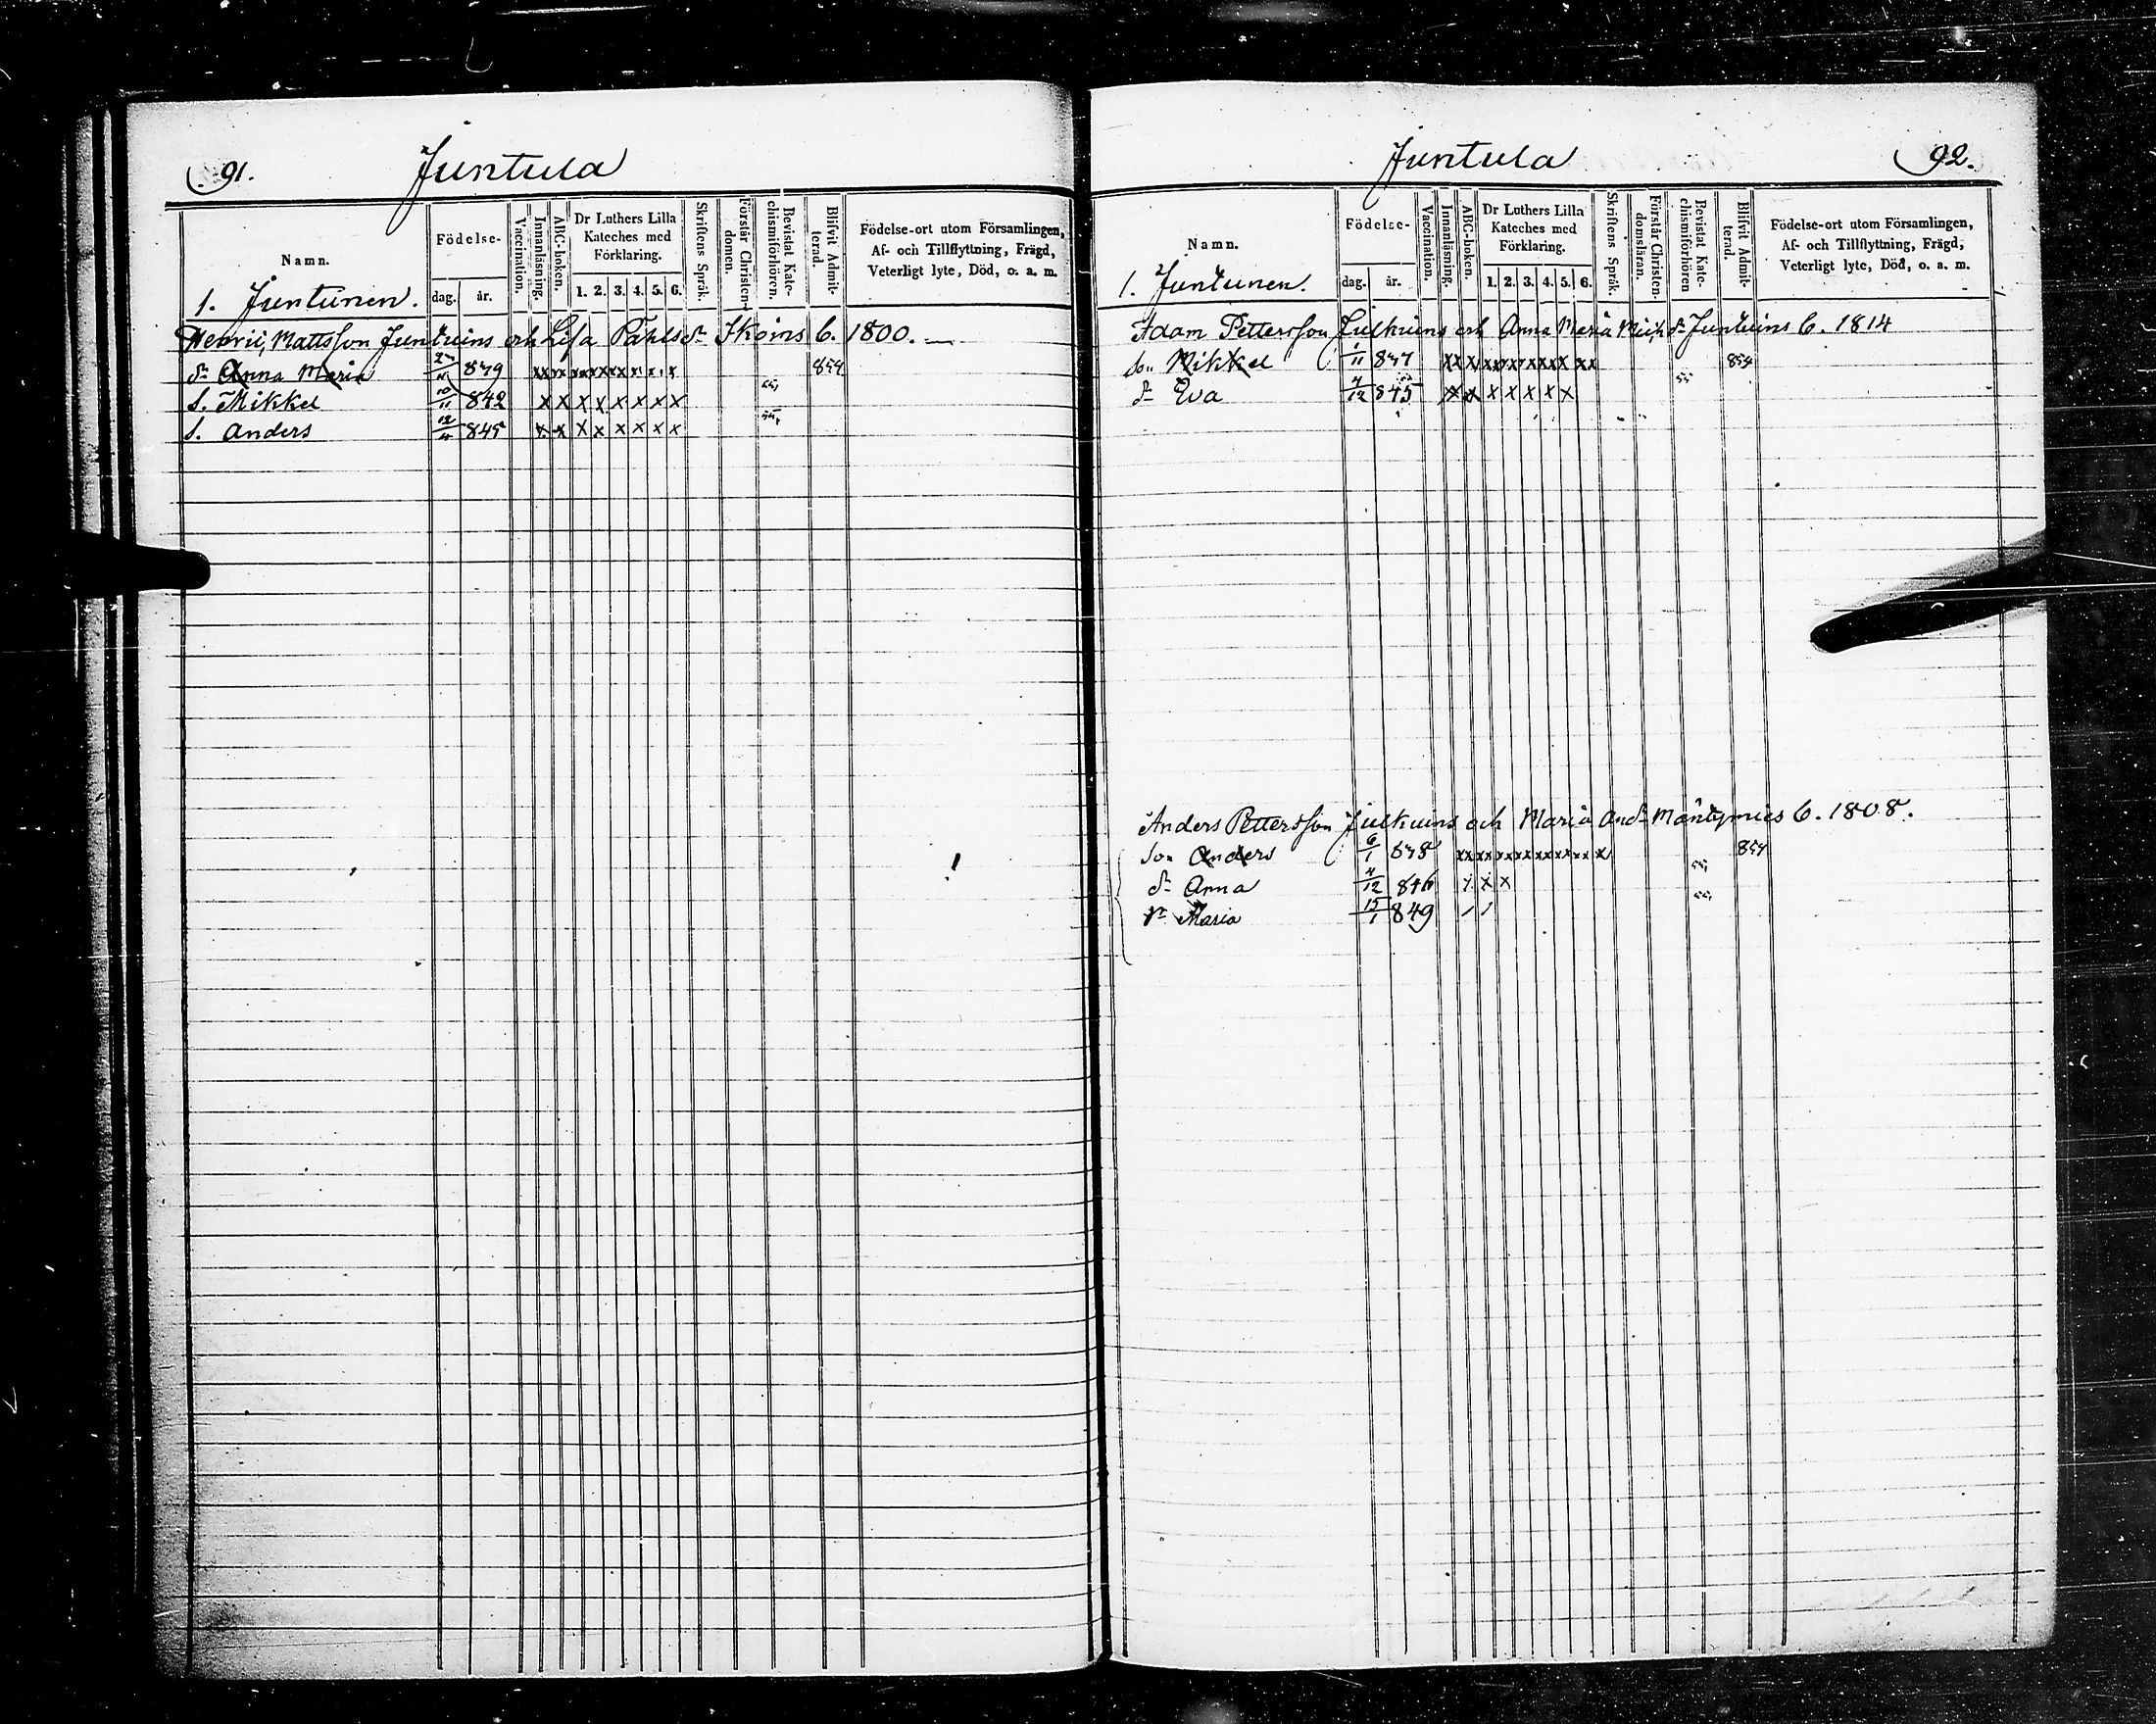 91.
Juntula
Namn.
Födelse-
dag.
år.
Vaccination.
Innanläsning.
ABC-boken.
Dr Luthers Lilla
Kateches med
Förklaring.
1. 2. 3. 4. 5. 6.
Skriftens Språk.
Förstår Christen-
domen.
Bevistat Kate-
chismiförhören.
Blifvit Admit-
terad.
Födelse-ort utom Församlingen,
Af- och Tillflyttning, Frägd,
Veterligt lyte, Död, o. a. m.
1. Juntunen.
Henric Mattsson Juntuins och Lisa Påhlsdr b. 1800.
dr Anna Maria 839 xx xx xx xx xx x x x x 854
s. Mikkel 10/11 842 x x x x x x x x 55,
s. Anders 12/4 845 x x x x x x x x 55,
Juntula
92.
Namn.
Födelse-
dag.
år.
Vaccination.
Innanläsning.
ABC-boken.
Dr Luthers Lilla
Kateches med
Förklaring.
1. 2. 3. 4. 5. 6.
Skriftens Språk.
Förstår Christen-
domsläran.
Bevistat Kate-
chismiförhören
Blifvit Admit-
terad.
Födelse-ort utom Församlingen,
Af- och Tillflyttning, Frägd,
Veterligt lyte, Död, o. a. m.
1. Juntunen.
Adam Pettersson Julkuins och Anna Maria Mich. dr Juntuins b. 1814
son Mikkel 1/11 837 xx x xx xx xx xx x xx 854
dr Eva 4/12 845 x x x x x x x 55
Anders Pettersson Julkuins och Maria And. dr Mäntymies b. 1808.
son Anders 6/1 838 xx xx xx xx xx xx xx x 854
dr Anna 4/12 846 x x x 55,
dr Maria 15/1 849 / / 55,